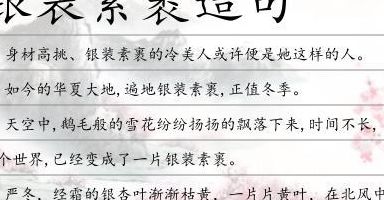 银装素裹造句
身材高挑、银装素裹的冷美人或许便是她这样的人。
如今的华夏大地,遍地银装素裹,正值冬季。
天空中,鹅毛般的雪花纷纷扬扬的飘落下来,时间不长,
个世界,已经变成了一片银装素裹。
严冬，经霜的银杏叶渐渐枯黄，一片片黄叶，在北风中